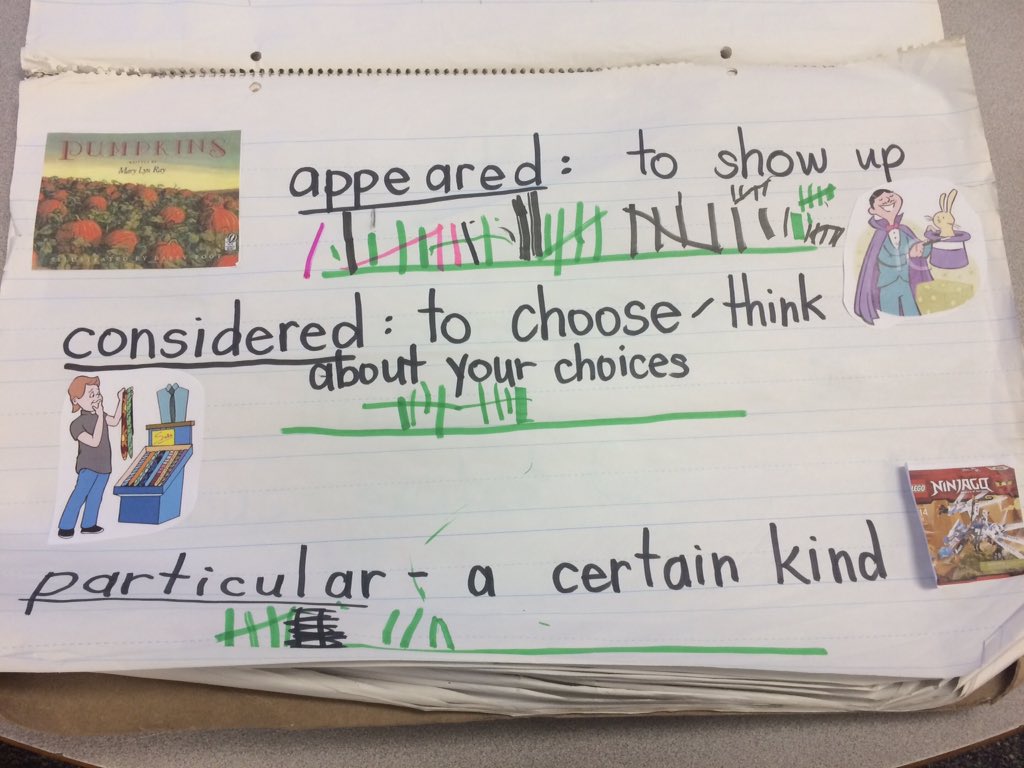 PUMPKINS
WRITTEN BY
Mary Lyn Ray
appeared: to show up
considered: to choose/think
about your choices
LEGO NINJAGO
particular - a certain kind